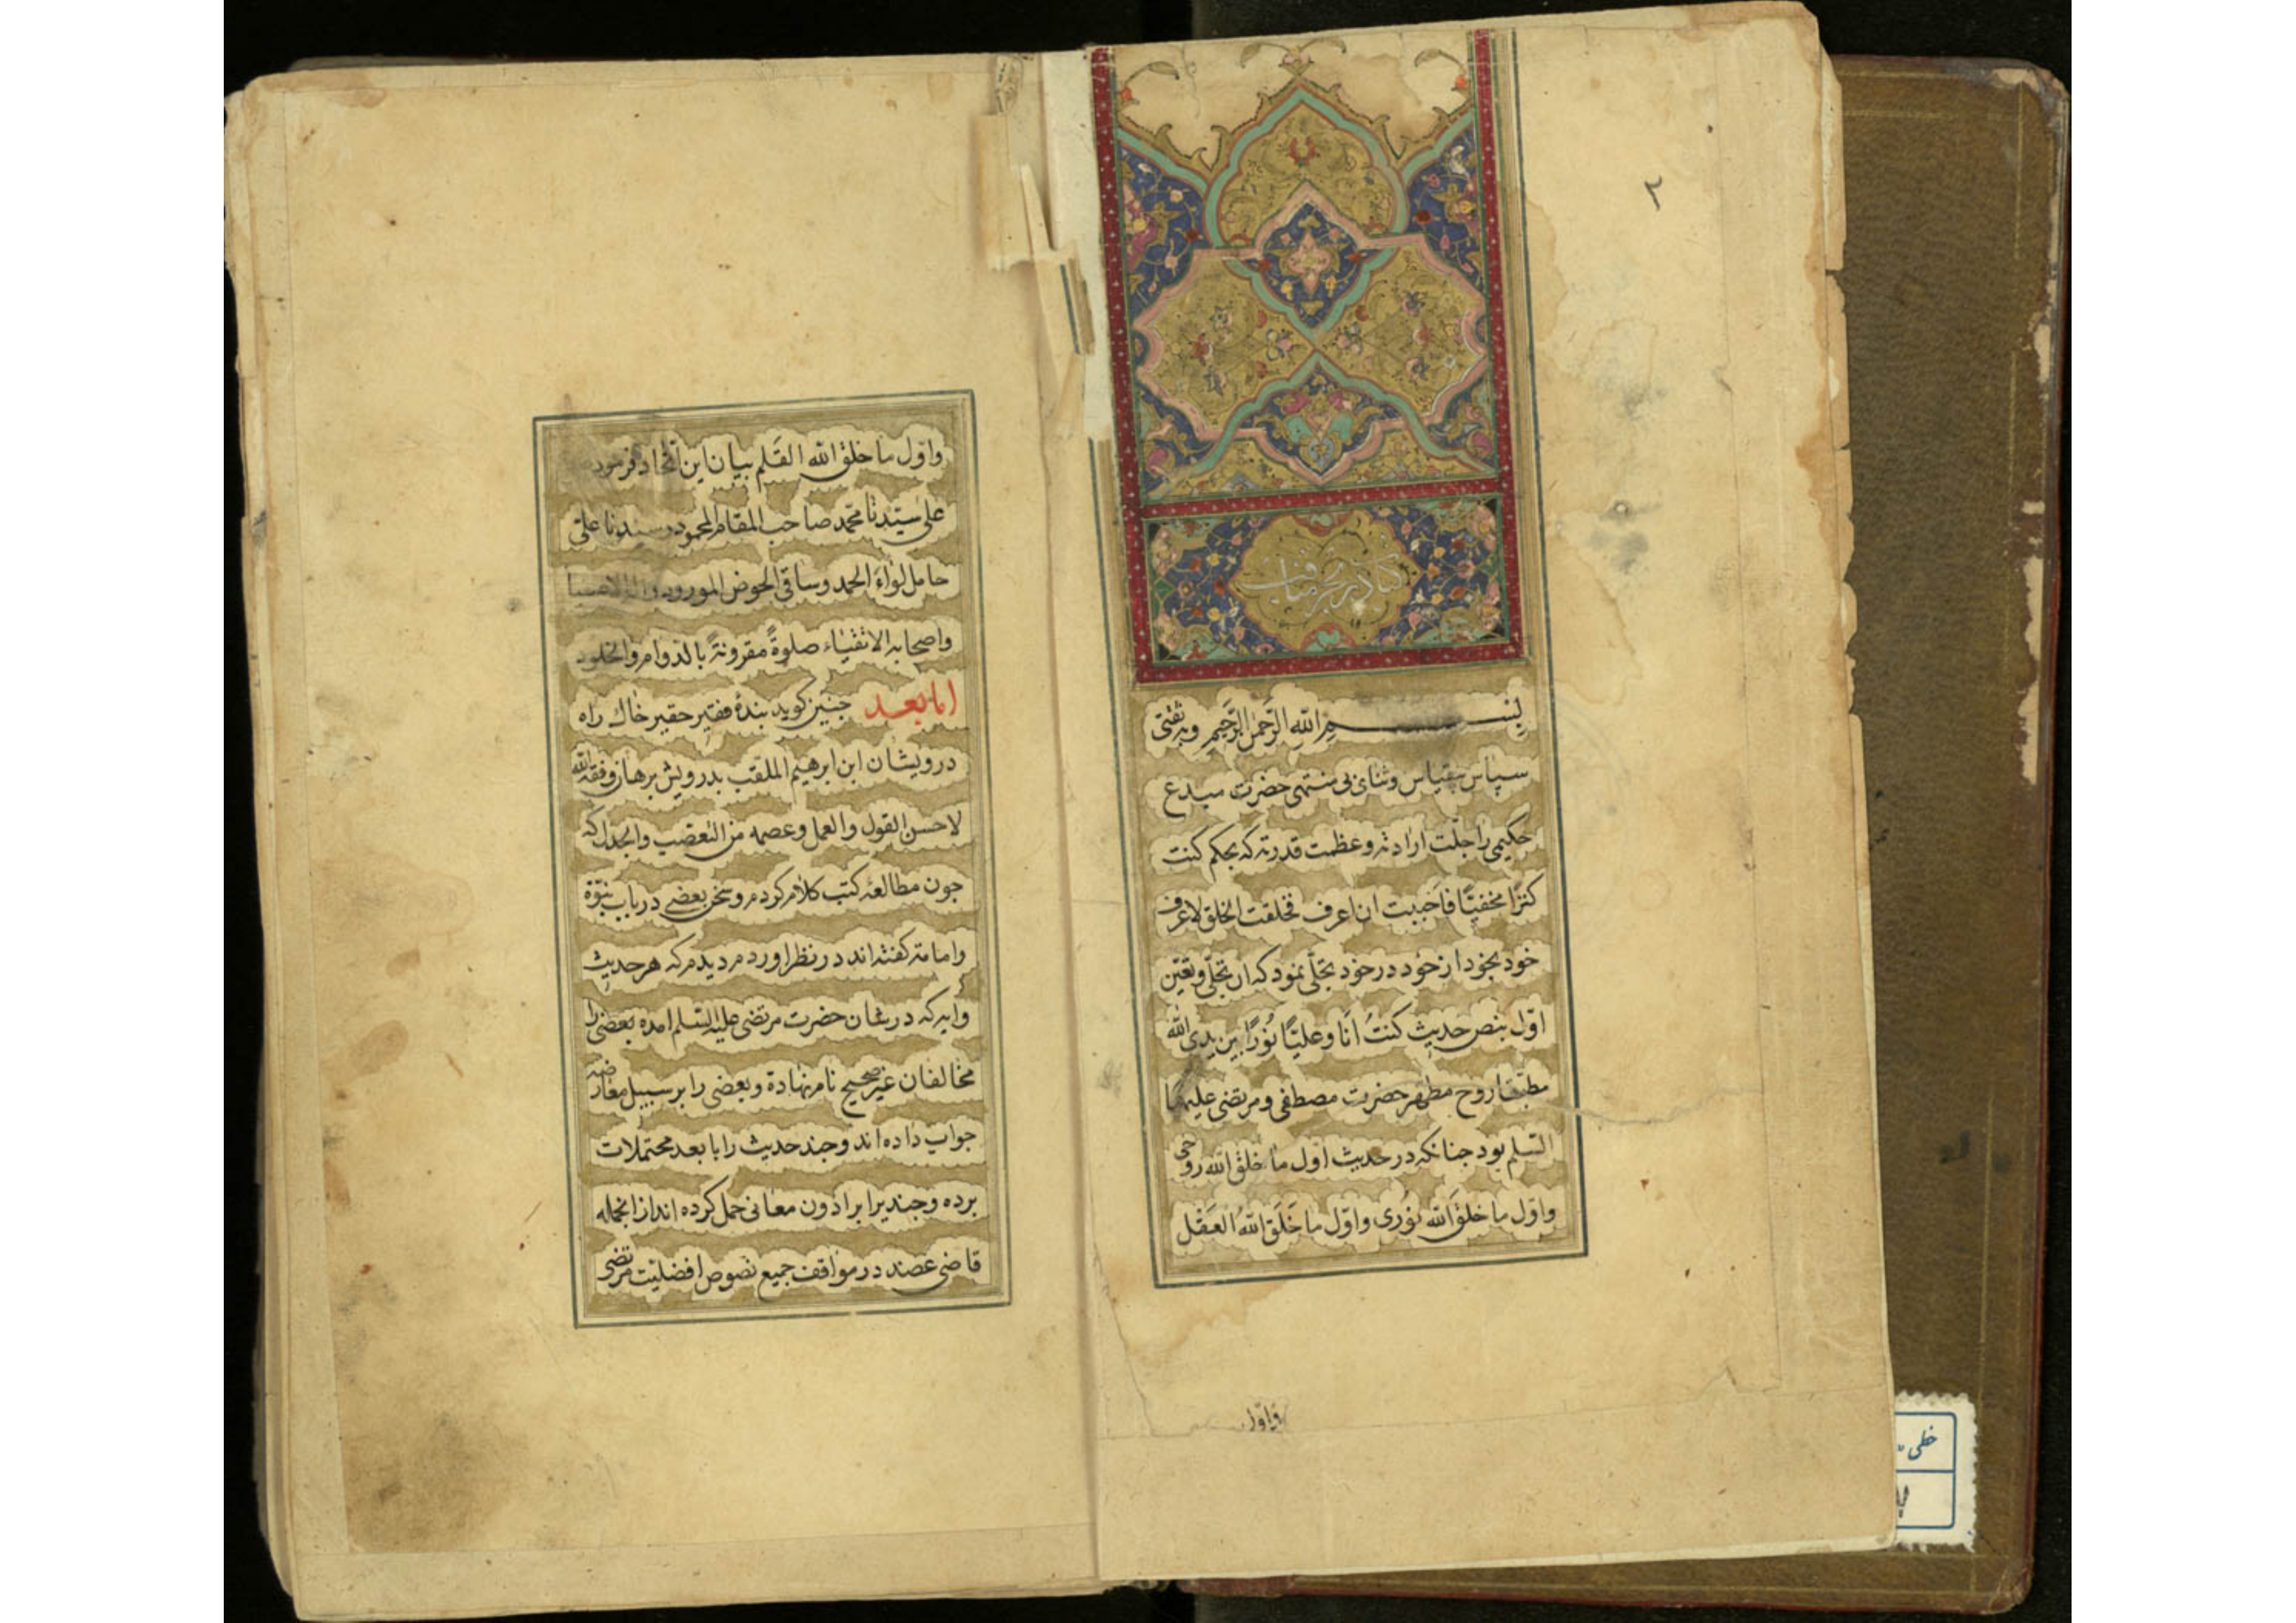 ۲
کتاب در بحر مناقب
بسم الله الرَّحمن الرَّحیم وبه ثقتی
سپاس بیقیاس وثنای بی منتهی حضرت مبدع
حکیمی را جلّت ارادته وعظمت قدرته که بحکم کنت
کنزًا مخفیًّا فاَحببت ان اعرف فخلقت الخلق لاعرف
خود بخود از خود در خود تجلّی نمود که ان تجلّی وتعیّن
اوّل بنص حدیث کنتُ اَنَا وعلیًّا نُورًا بین یدی الله
مطبقا روح مطهر حضرت مصطفی ومرتضی علیهما
السّلم بود جنانکه در حدیث اول ما خلق الله روحی
واوّل ما خلق الله نُوری واوّل ما خَلَق اللهُ العَقْل
واوّل
واوّل ما خلق الله القَلم بیان این اتّحاد فرمود
علی سیّدنا محمّد صاحب المقام المحمود وسیدنا علیّ
حامل لواءَ الحمد وساقی الحوض المورود واله الاصفیا
واصحابه الاتقیاء صلوةً مقرونةً بالدوام والخلود
امابعد جنین کوید بندهٔ فقیر حقیر خاک راه
درویشان ابن ابرهیم الملقب بدرویش برهان وفقه الله
لاحسن القول والعمل وعصمه من التعصب والجدل که
جون مطالعهٔ کتب کلام کردم وسخن بعضی در باب نبوّة
وامامة کفته اند در نظر اوردم دیدم که هر حدیث
وایه که در شان حضرت مرتضی علیه السّلم امده بعضی را
مخالفان غیر صحیح نام نهاده وبعضی را بر سبیل معارضه
جواب داده اند وجند حدیث را با بعد محتملات
برده وجندیرا بر ادون معانی حمل کرده اند از انجمله
قاضی عضد در مواقف جمیع نصوص افضلیّت مرتضی
خطی